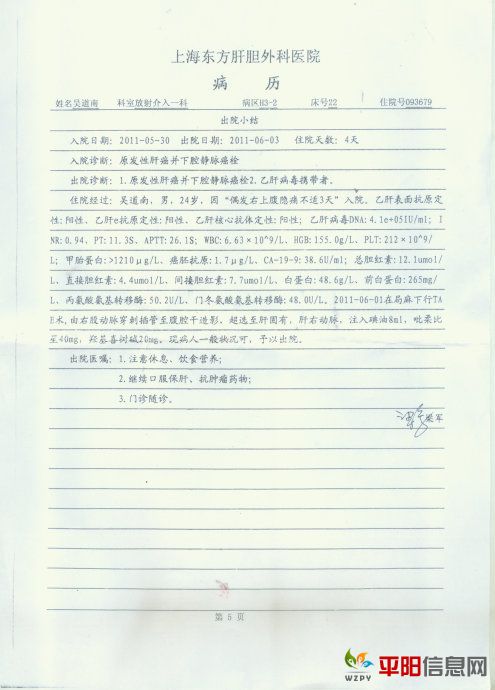 上海东方肝胆外科医院
病 历
姓名吴道南 科室放射介入一科 病区H3-2 床号22 住院号093679
出院小结
入院日期: 2011-05-30 出院日期: 2011-06-03 住院天数: 4天
入院诊断: 原发性肝癌并下腔静脉癌栓
出院诊断: 1.原发性肝癌并下腔静脉癌栓2.乙肝病毒携带者。
住院经过: 吴道南, 男, 24岁, 因“偶发右上腹隐痛不适3天”入院。乙肝表面抗原定
性:阳性、乙肝e抗原定性:阳性、乙肝核心抗体定性:阳性; 乙肝病毒DNA:4.1e+05IU/ml; I
NR:0.94, PT:11.3S, APTT:26.1S; WBC:6.63×10^9/L, HGB:155.0g/L, PLT:212×10^9/
L; 甲胎蛋白:>1210μg/L、癌胚抗原:1.7μg/L、CA-19-9:38.6U/ml; 总胆红素:12.1umol/
L、直接胆红素:4.4umol/L、间接胆红素:7.7umol/L、白蛋白:48.6g/L、前白蛋白:265mg/
L、丙氨酸氨基转移酶:50.2U/L、门冬氨酸氨基转移酶:48.0U/L。2011-06-01在局麻下行TA
E术,由右股动脉穿刺插管至腹腔干造影。超选至肝固有, 肝右动脉, 注入碘油8ml, 吡柔比
星40mg, 羟基喜树碱20mg。现病人一般状况可, 予以出院。
出院医嘱: 1.注意休息、饮食营养;
2.继续口服保肝、抗肿瘤药物;
3.门诊随诊。
军
第 5 页
WZPY 平阳信息网